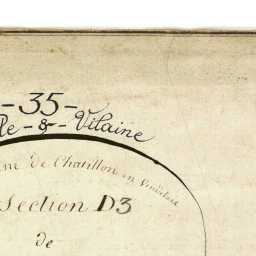 - 35 -
le - & - Vilaine
ne de Chatillon en Vendelais
Section D3
de